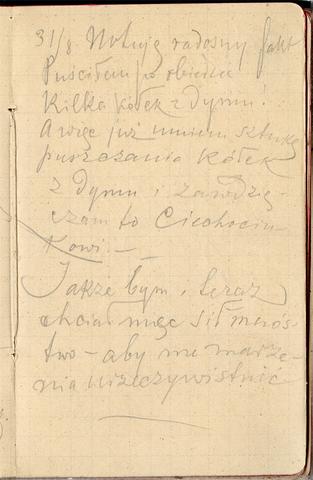 31/8 Notuję radosny fakt
Puściłem po obiedzie
Kilka kółek z dymu!
A więc już umiem sztukę
puszczania kółek
z dymu i zawdzię-
czam to Ciechocin
kowi. –
Także bym i teraz
chciał mieć sił mnós-
two – aby me marze-
nia urzeczywistnić